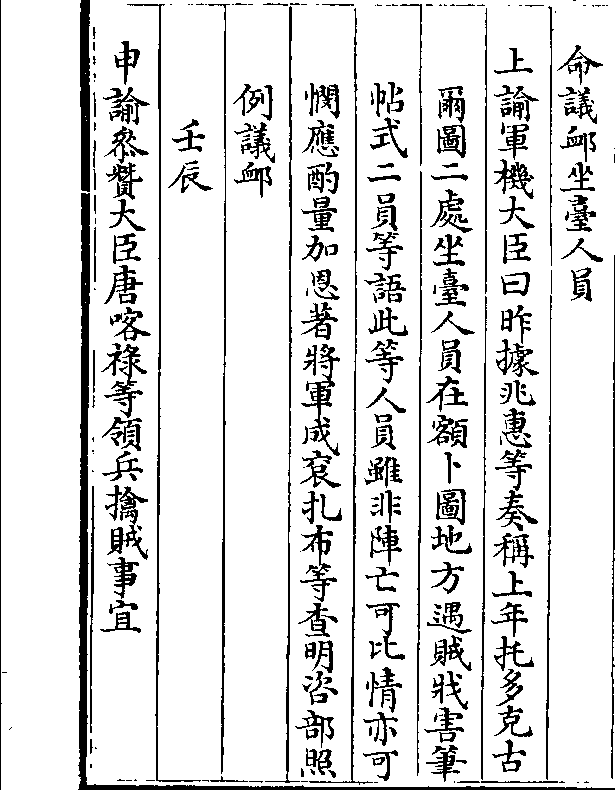 命議䘏坐臺人員
上諭軍機大臣曰昨據兆惠等奏稱上年托多克古
爾圖二處坐臺人員在額卜圖地方遇賊戕害筆
帖式二員等語此等人員雖非陣亡可比情亦可
憫應酌量加恩著將軍成袞扎布等查明咨部照
例議䘏
壬辰
申諭叅贊大臣唐喀祿等領兵擒賊事宜